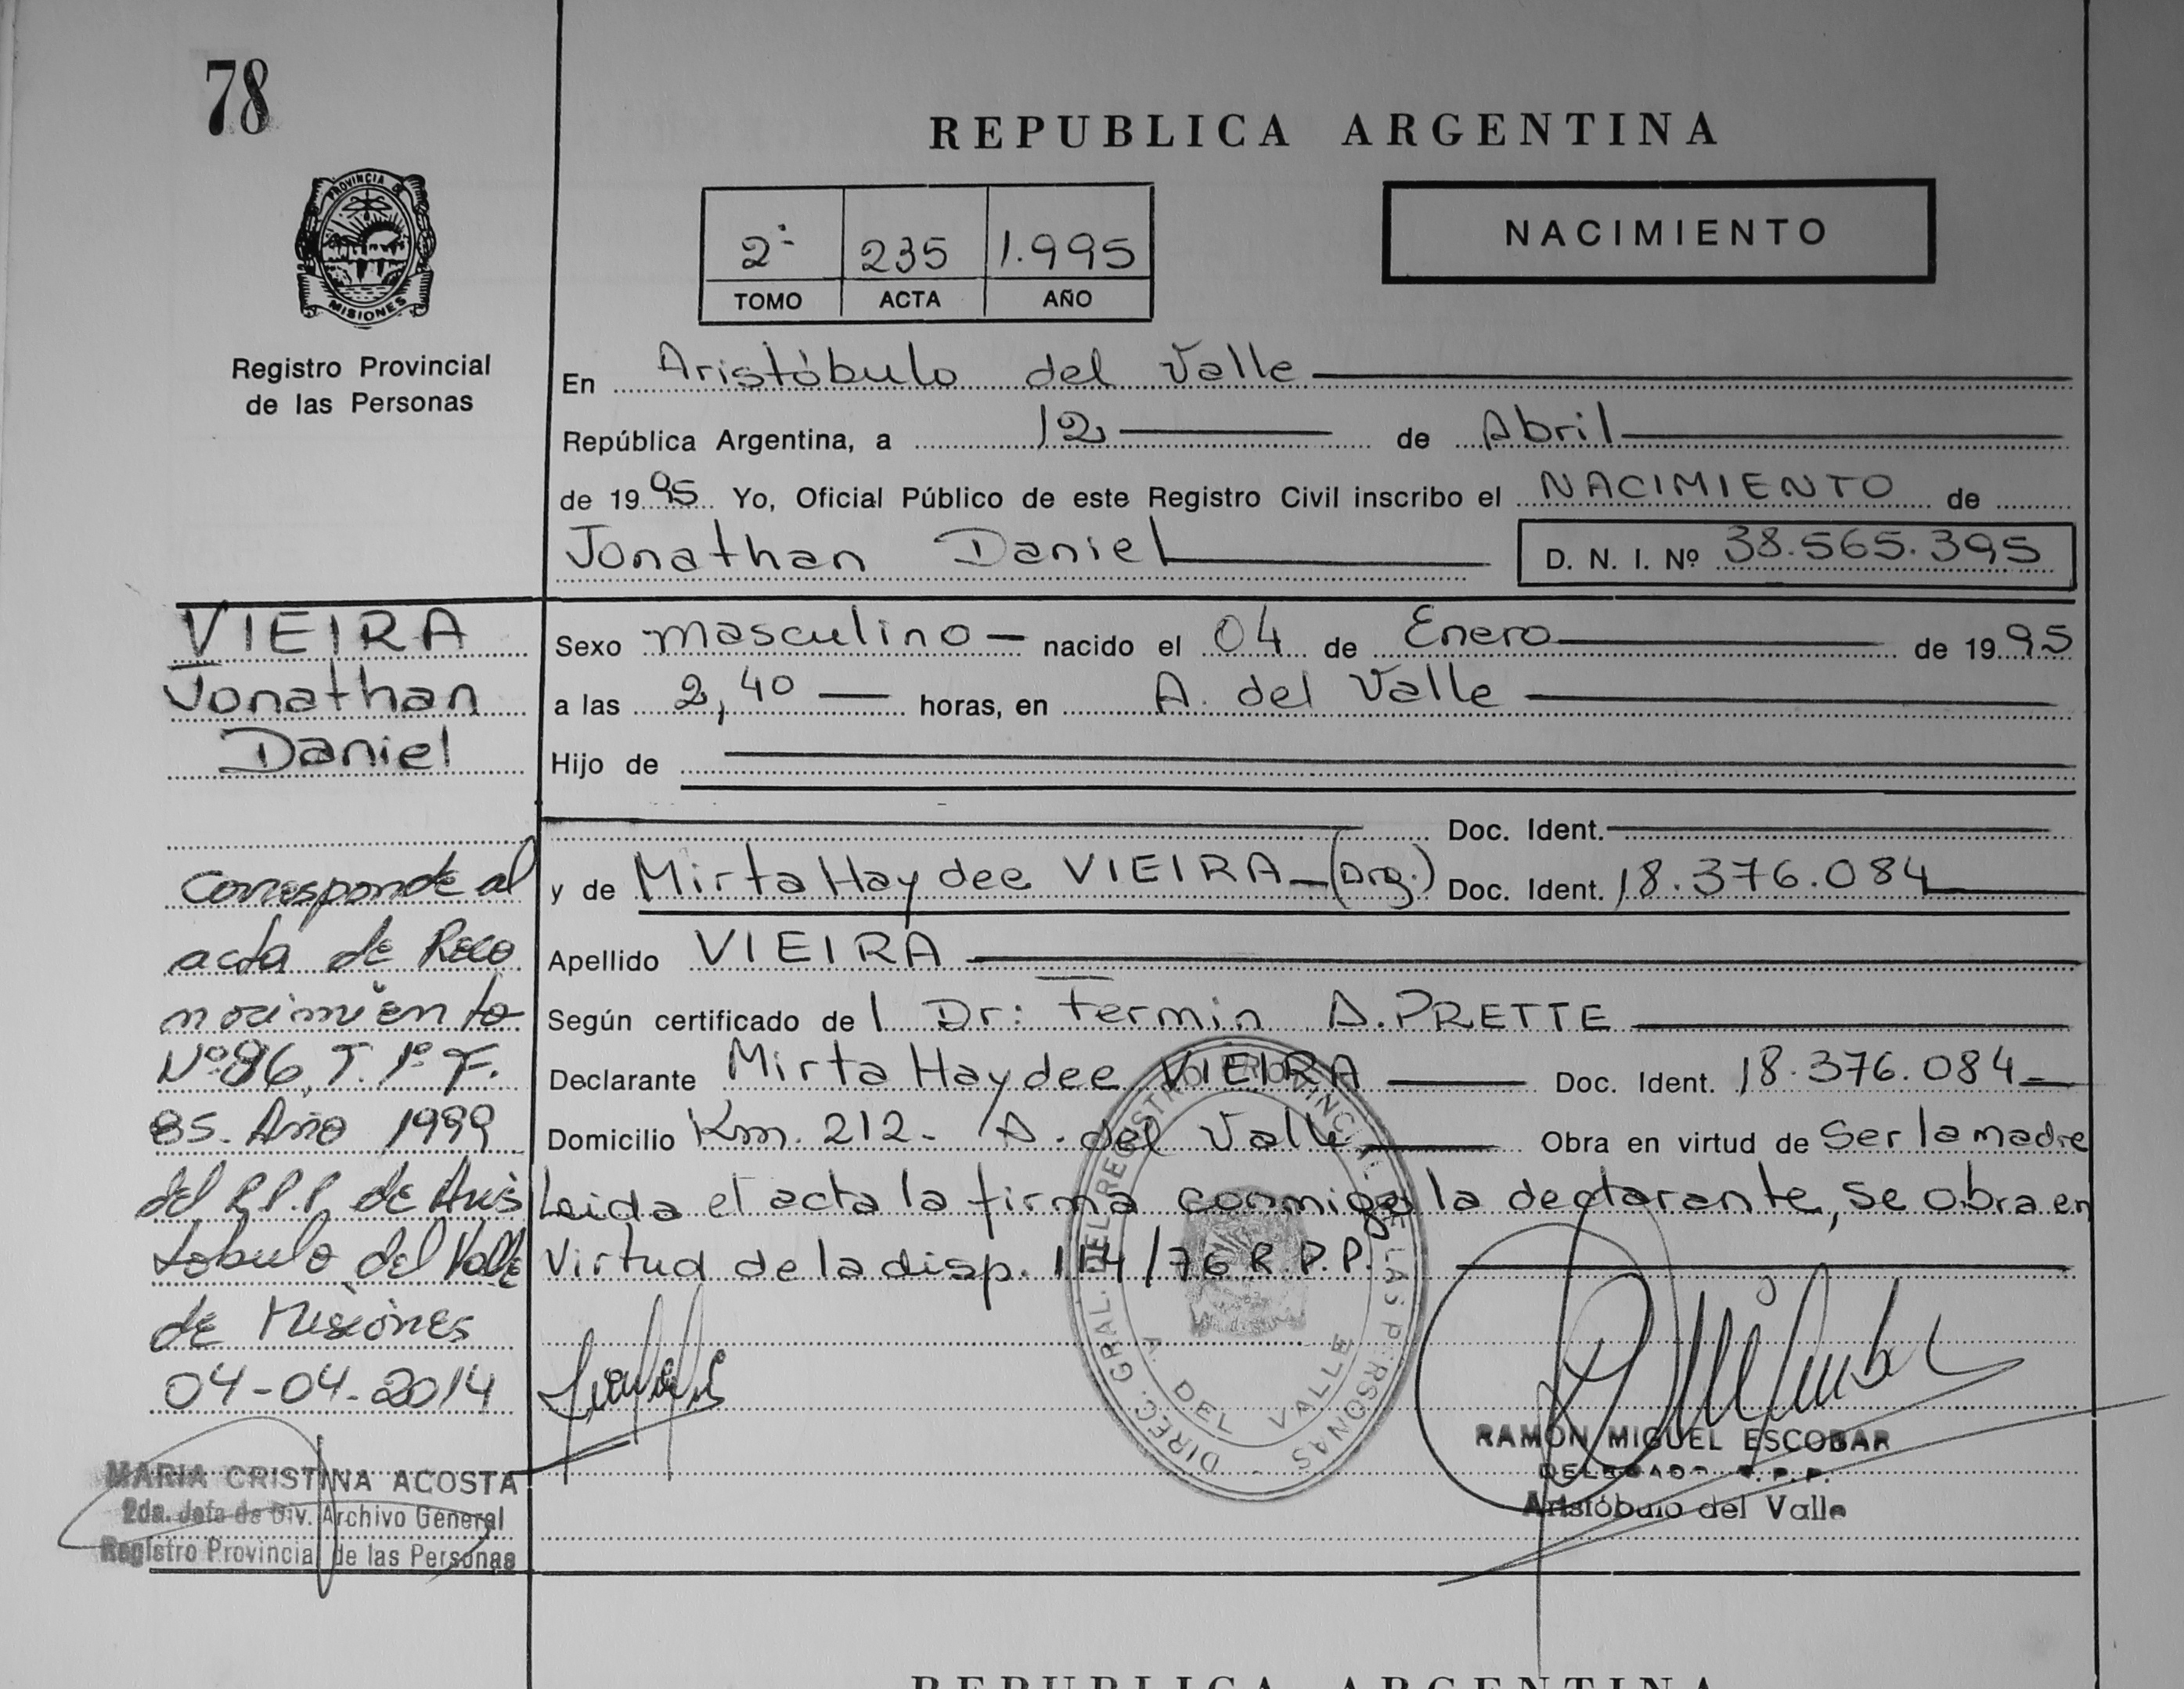 78
REPUBLICA ARGENTINA
PROVINCIA DE
MISIONES
Registro Provincial
de las Personas
2º 235 1.995
TOMO ACTA AÑO
NACIMIENTO
En Aristóbulo del Valle
República Argentina, a 12 de Abril
de 1995 Yo, Oficial Público de este Registro Civil inscribo el NACIMIENTO de
Jonathan Daniel D. N. I. Nº 38.565.395
VIEIRA
Jonathan
Daniel
Sexo masculino nacido el 04 de Enero de 1995
a las 2,40 horas, en A. del Valle
Hijo de
Doc. Ident.
y de Mirta Haydee VIEIRA (Arg.) Doc. Ident. 18.376.084
Apellido VIEIRA
Según certificado del Dr: Fermin A. PRETTE
Declarante Mirta Haydee VIEIRA Doc. Ident. 18.376.084
Domicilio Km. 212 - A. del Valle Obra en virtud de Ser la madre
Leida el acta la firma conmigo la declarante, se obra en
Virtud de la disp. 114/76 R.P.P.
Corresponde al
acta de Reco
nocimiento
Nº 86, T. 1º F.
85. Año 1999
del R.P.P. de Aris
tobulo del Valle
de Misiones
04-04-2014
MARIA CRISTINA ACOSTA
2da. Jefa de Div. Archivo General
Registro Provincial de las Personas
DIREC. GRAL. DEL REGISTRO PROVINCIAL DE LAS PERSONAS
A. DEL VALLE
RAMON MIGUEL ESCOBAR
DELEGADO R.P.P.
Aristóbulo del Valle
REPUBLICA ARGENTINA